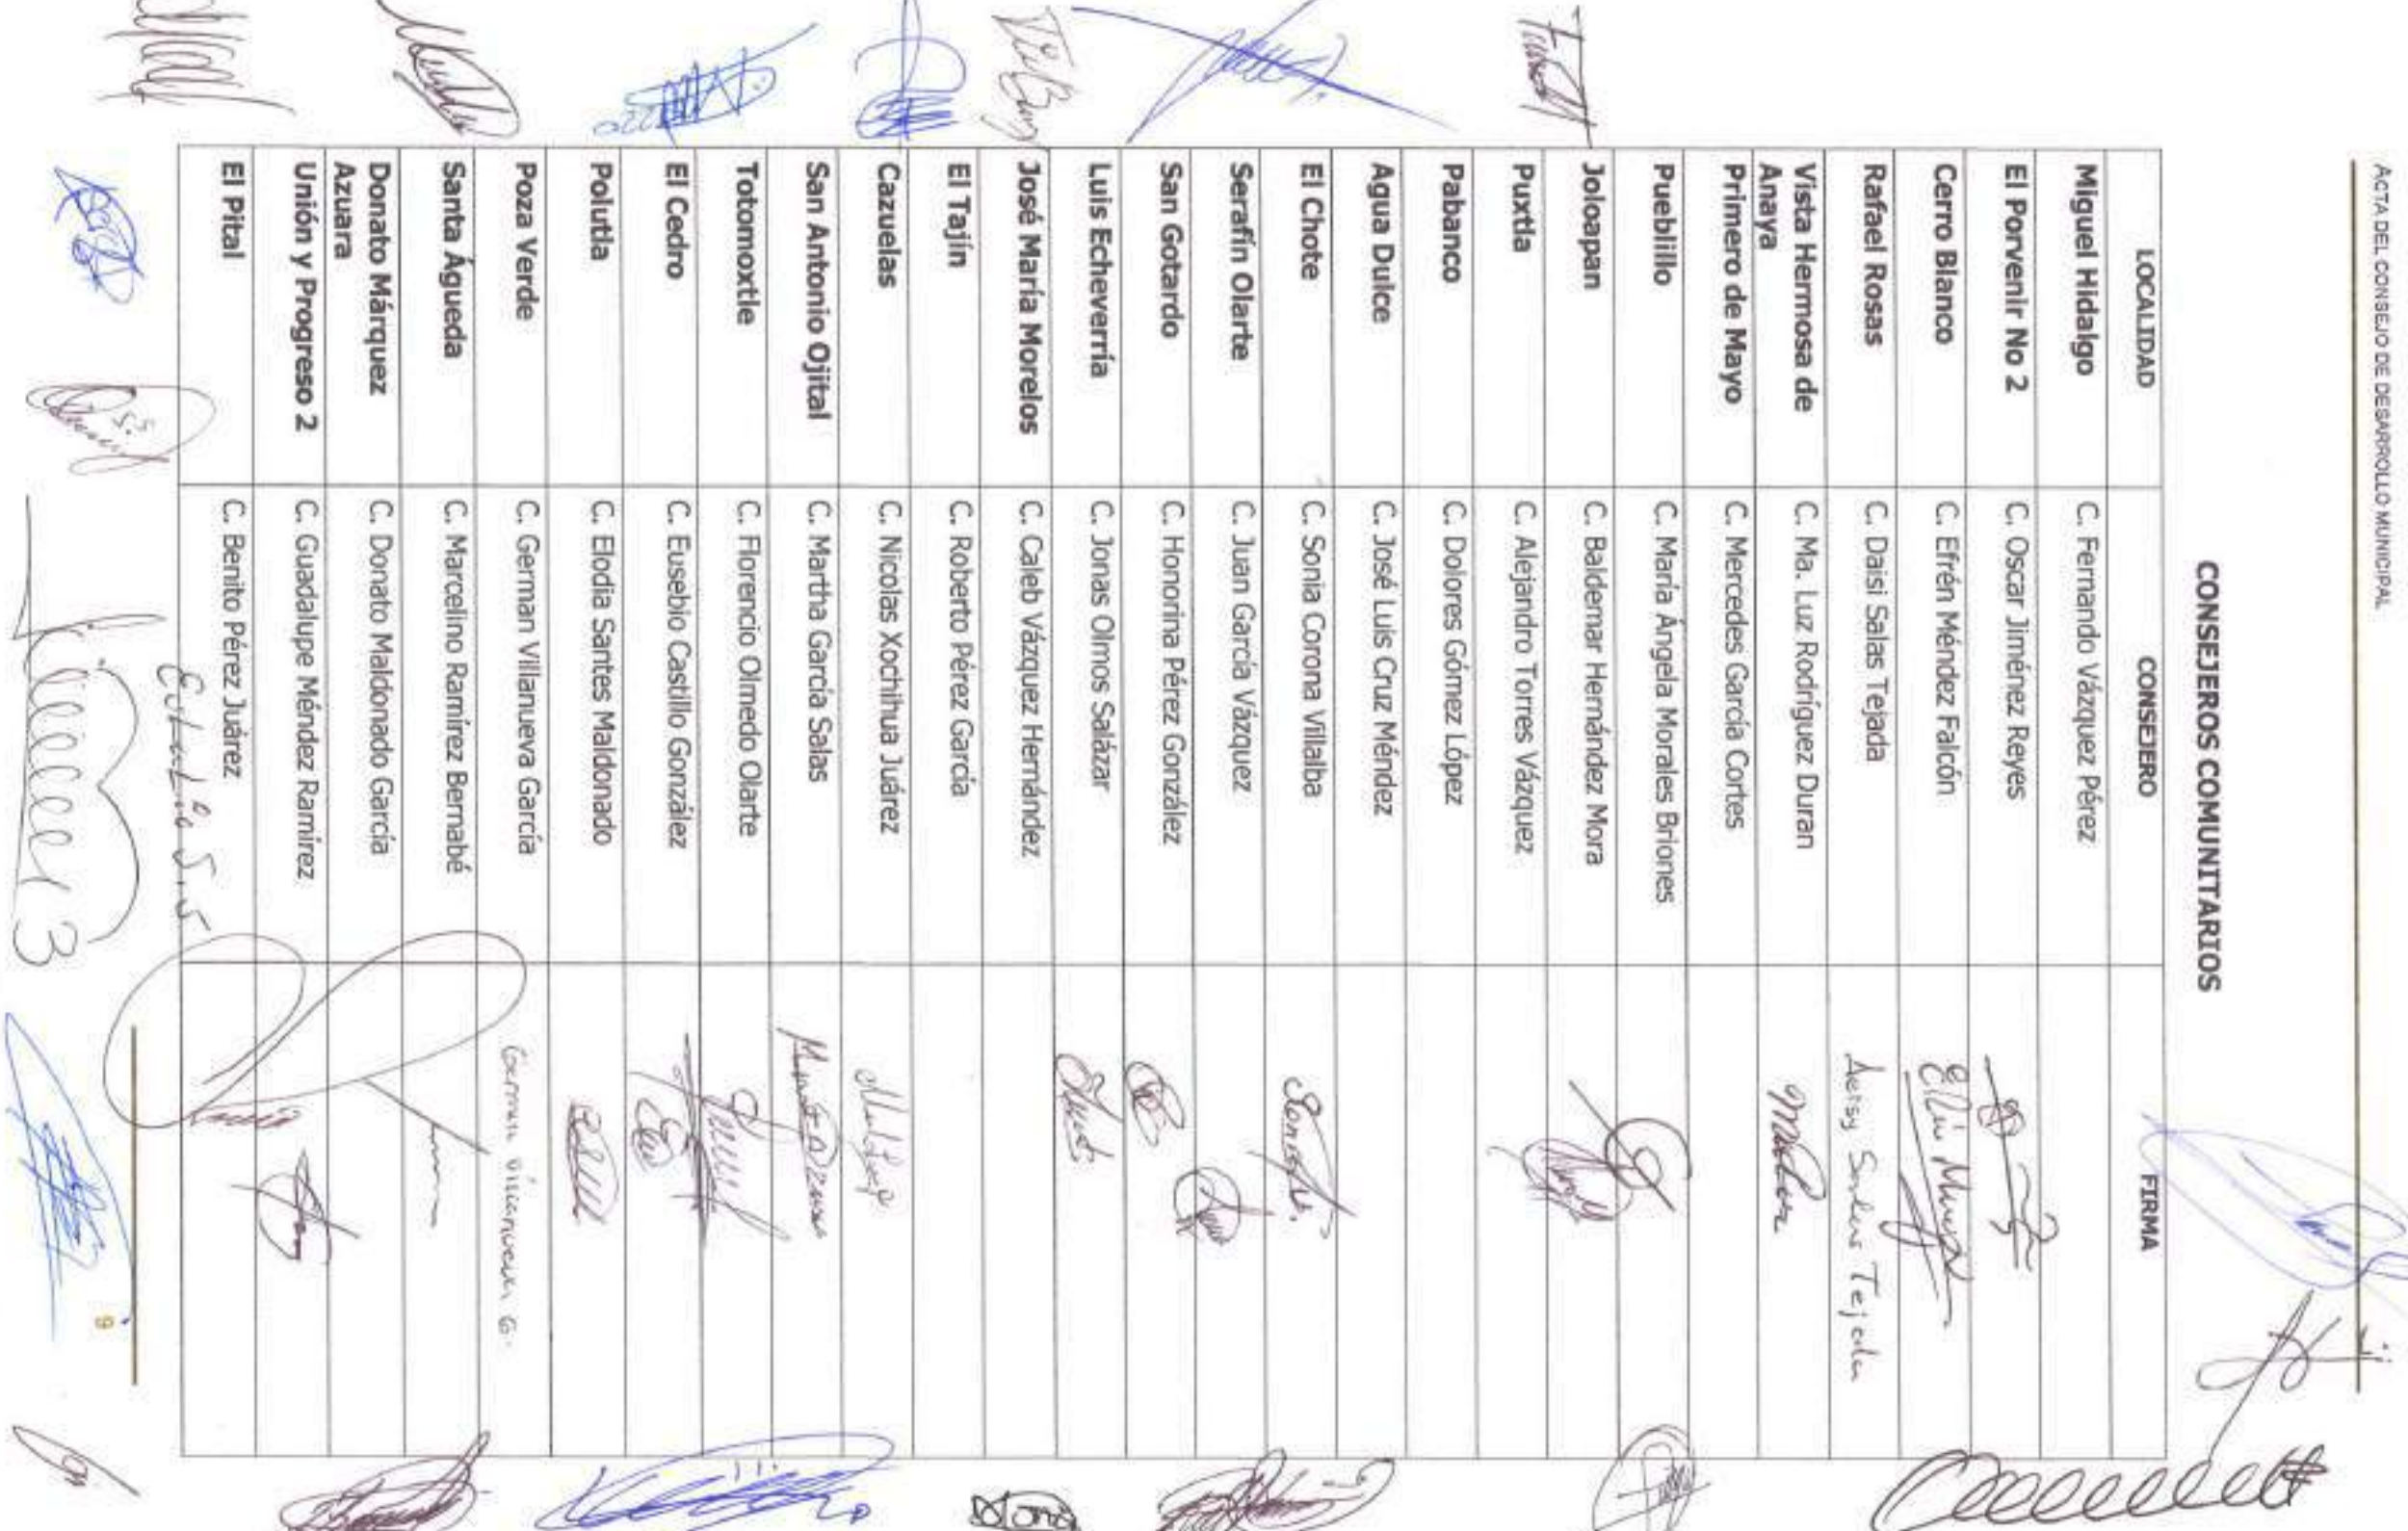 ACTA DEL CONSEJO DE DESARROLLO MUNICIPAL
CONSEJEROS COMUNITARIOS
LOCALIDAD CONSEJERO FIRMA
Miguel Hidalgo C. Fernando Vázquez Pérez
El Porvenir No 2 C. Oscar Jiménez Reyes
Cerro Blanco C. Efrén Méndez Falcón
Rafael Rosas C. Daisi Salas Tejada
Vista Hermosa de
Anaya C. Ma. Luz Rodríguez Duran
Primero de Mayo C. Mercedes García Cortes
Pueblillo C. María Ángela Morales Briones
Joloapan C. Baldemar Hernández Mora
Puxtla C. Alejandro Torres Vázquez
Pabanco C. Dolores Gómez López
Agua Dulce C. José Luis Cruz Méndez
El Chote C. Sonia Corona Villalba
Serafín Olarte C. Juan García Vázquez
San Gotardo C. Honorina Pérez González
Luis Echeverría C. Jonas Olmos Salázar
José María Morelos C. Caleb Vázquez Hernández
El Tajín C. Roberto Pérez García
Cazuelas C. Nicolas Xochihua Juárez
San Antonio Ojital C. Martha García Salas
Totomoxtle C. Florencio Olmedo Olarte
El Cedro C. Eusebio Castillo González
Polutla C. Elodia Santes Maldonado
Poza Verde C. German Villanueva García German Villanueva G.
Santa Águeda C. Marcelino Ramírez Bernabé
Donato Márquez
Azuara C. Donato Maldonado García
Unión y Progreso 2 C. Guadalupe Méndez Ramírez
El Pital C. Benito Pérez Juárez
9